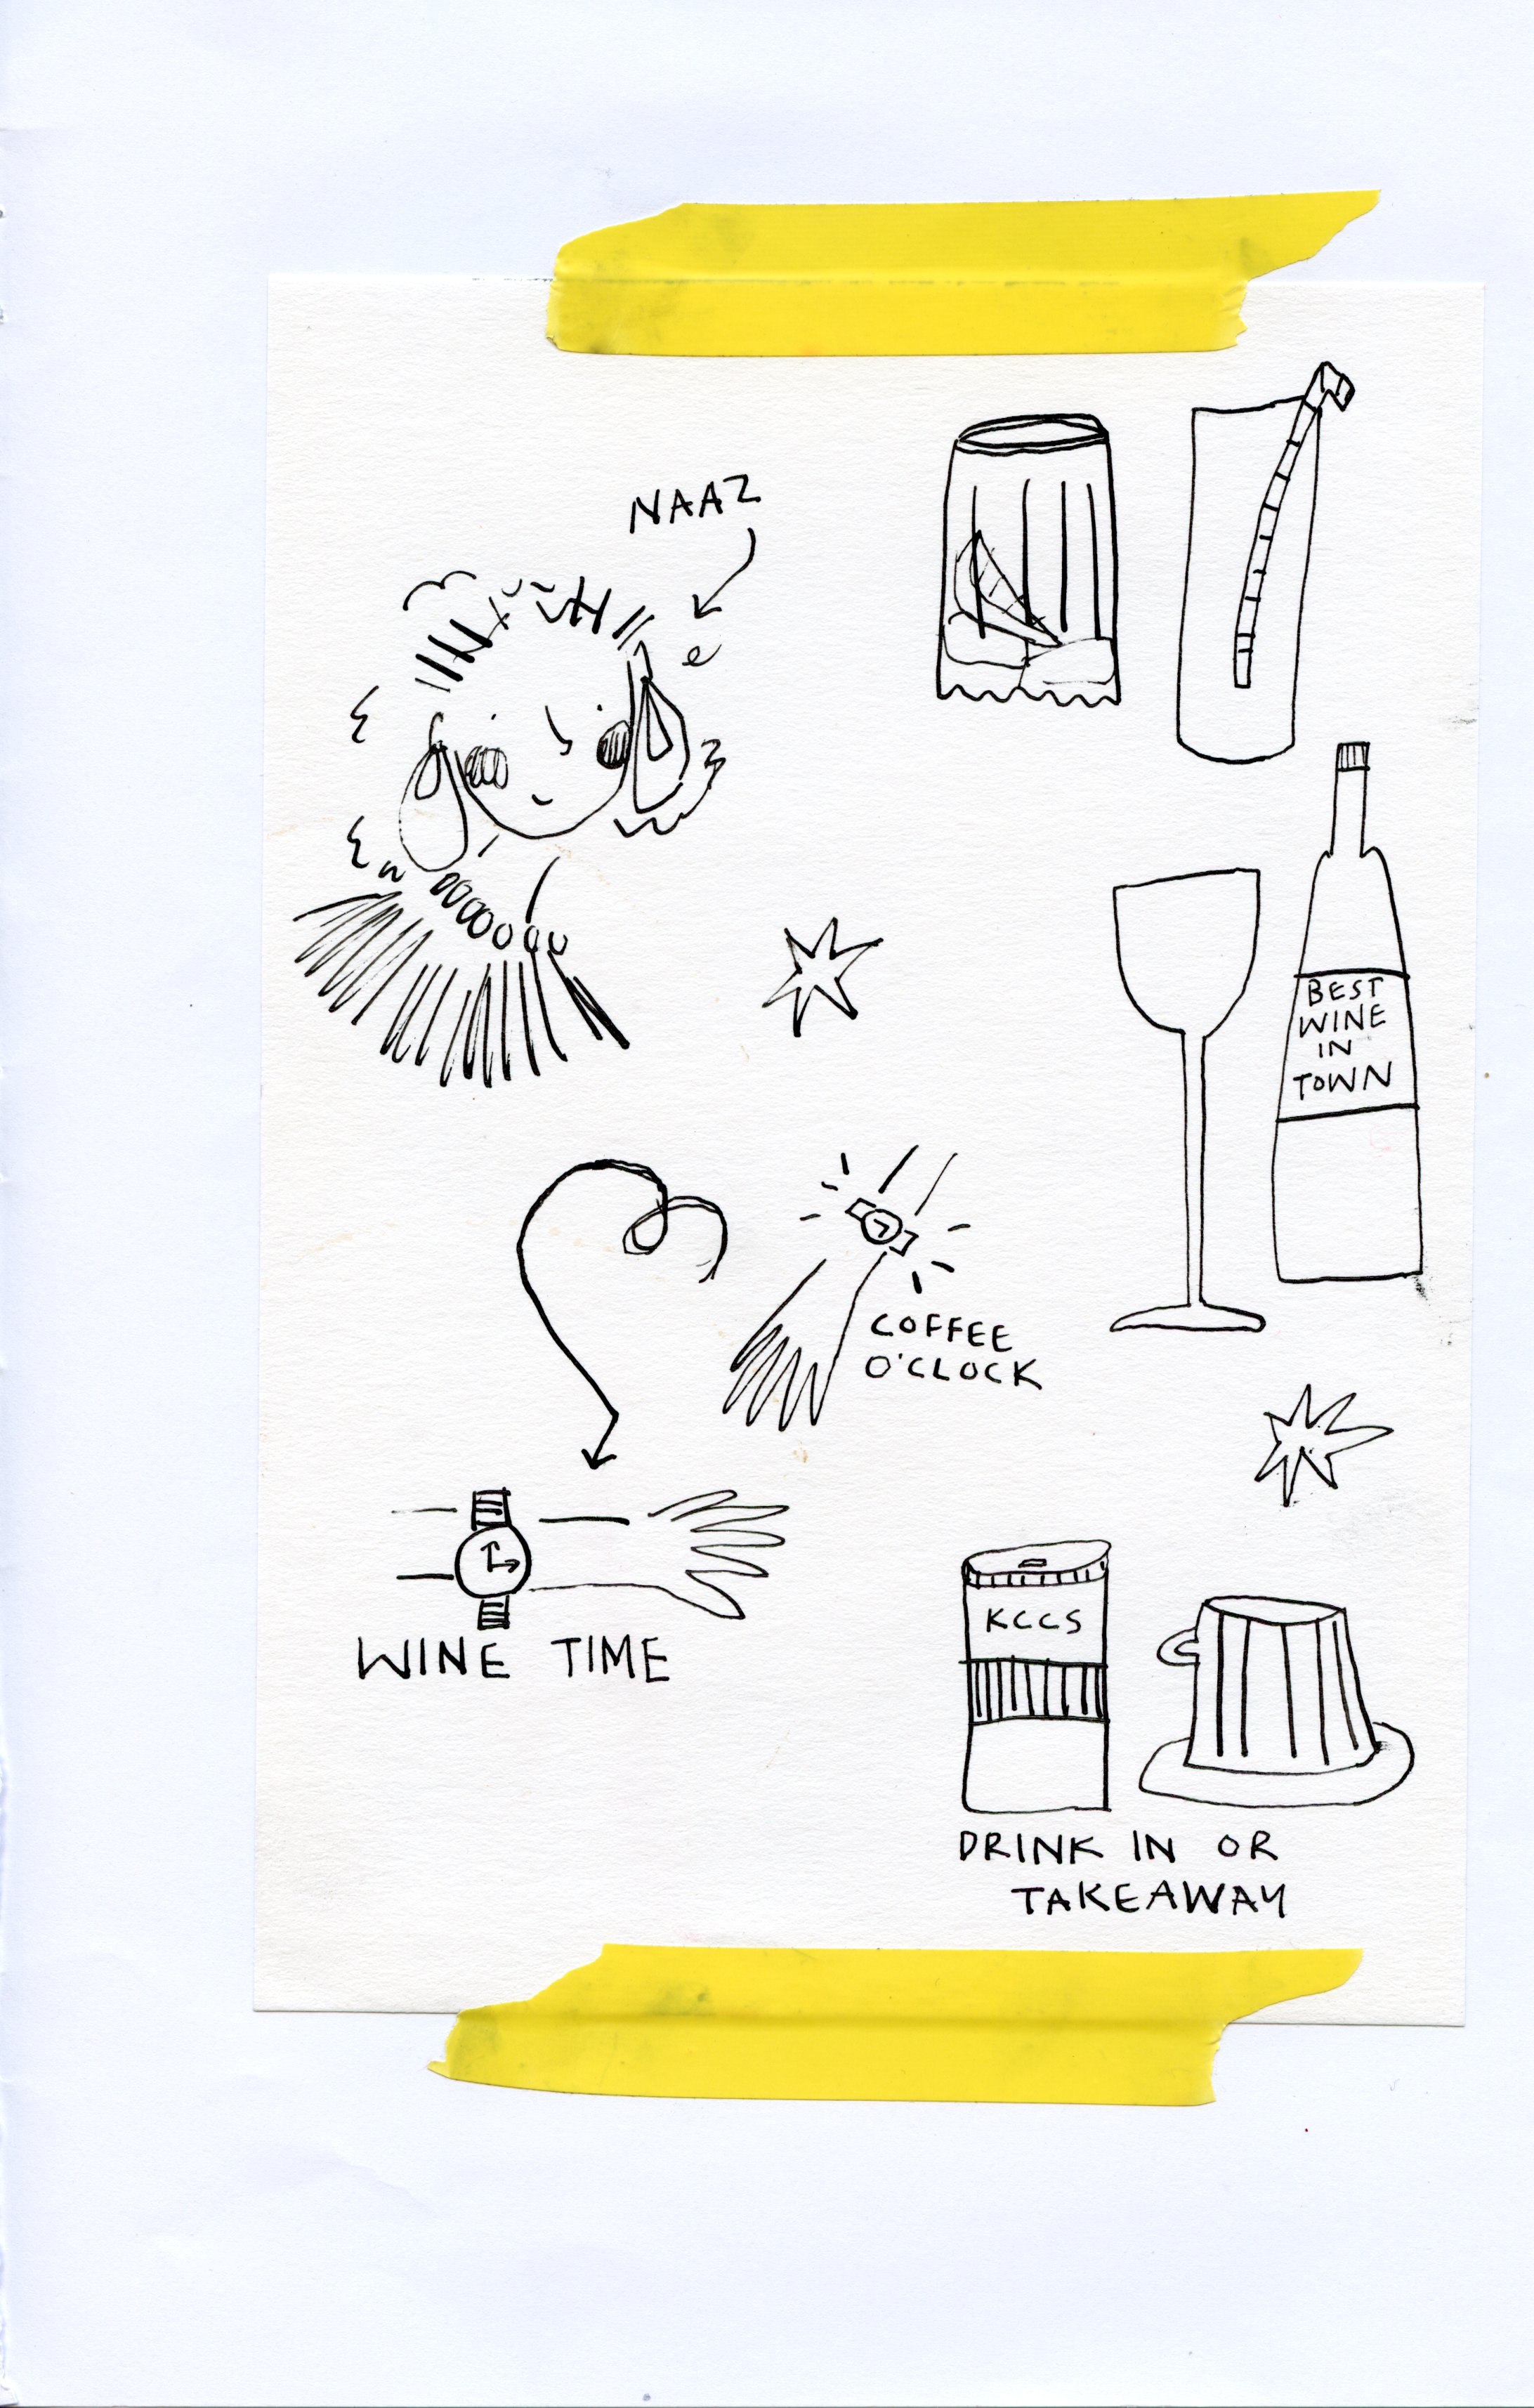 NAAZ
BEST
WINE
IN
TOWN
COFFEE
O'CLOCK
WINE TIME
KCCS
DRINK IN OR
TAKEAWAY